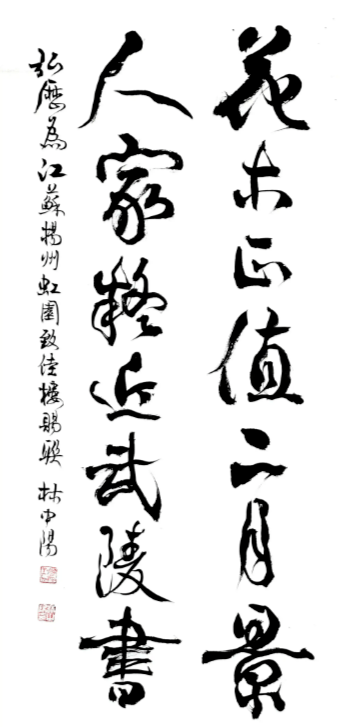 花木正值二月景
人家疑近武陵書
弘曆為江蘇揚州虹園致佳樓賜聯 林中陽